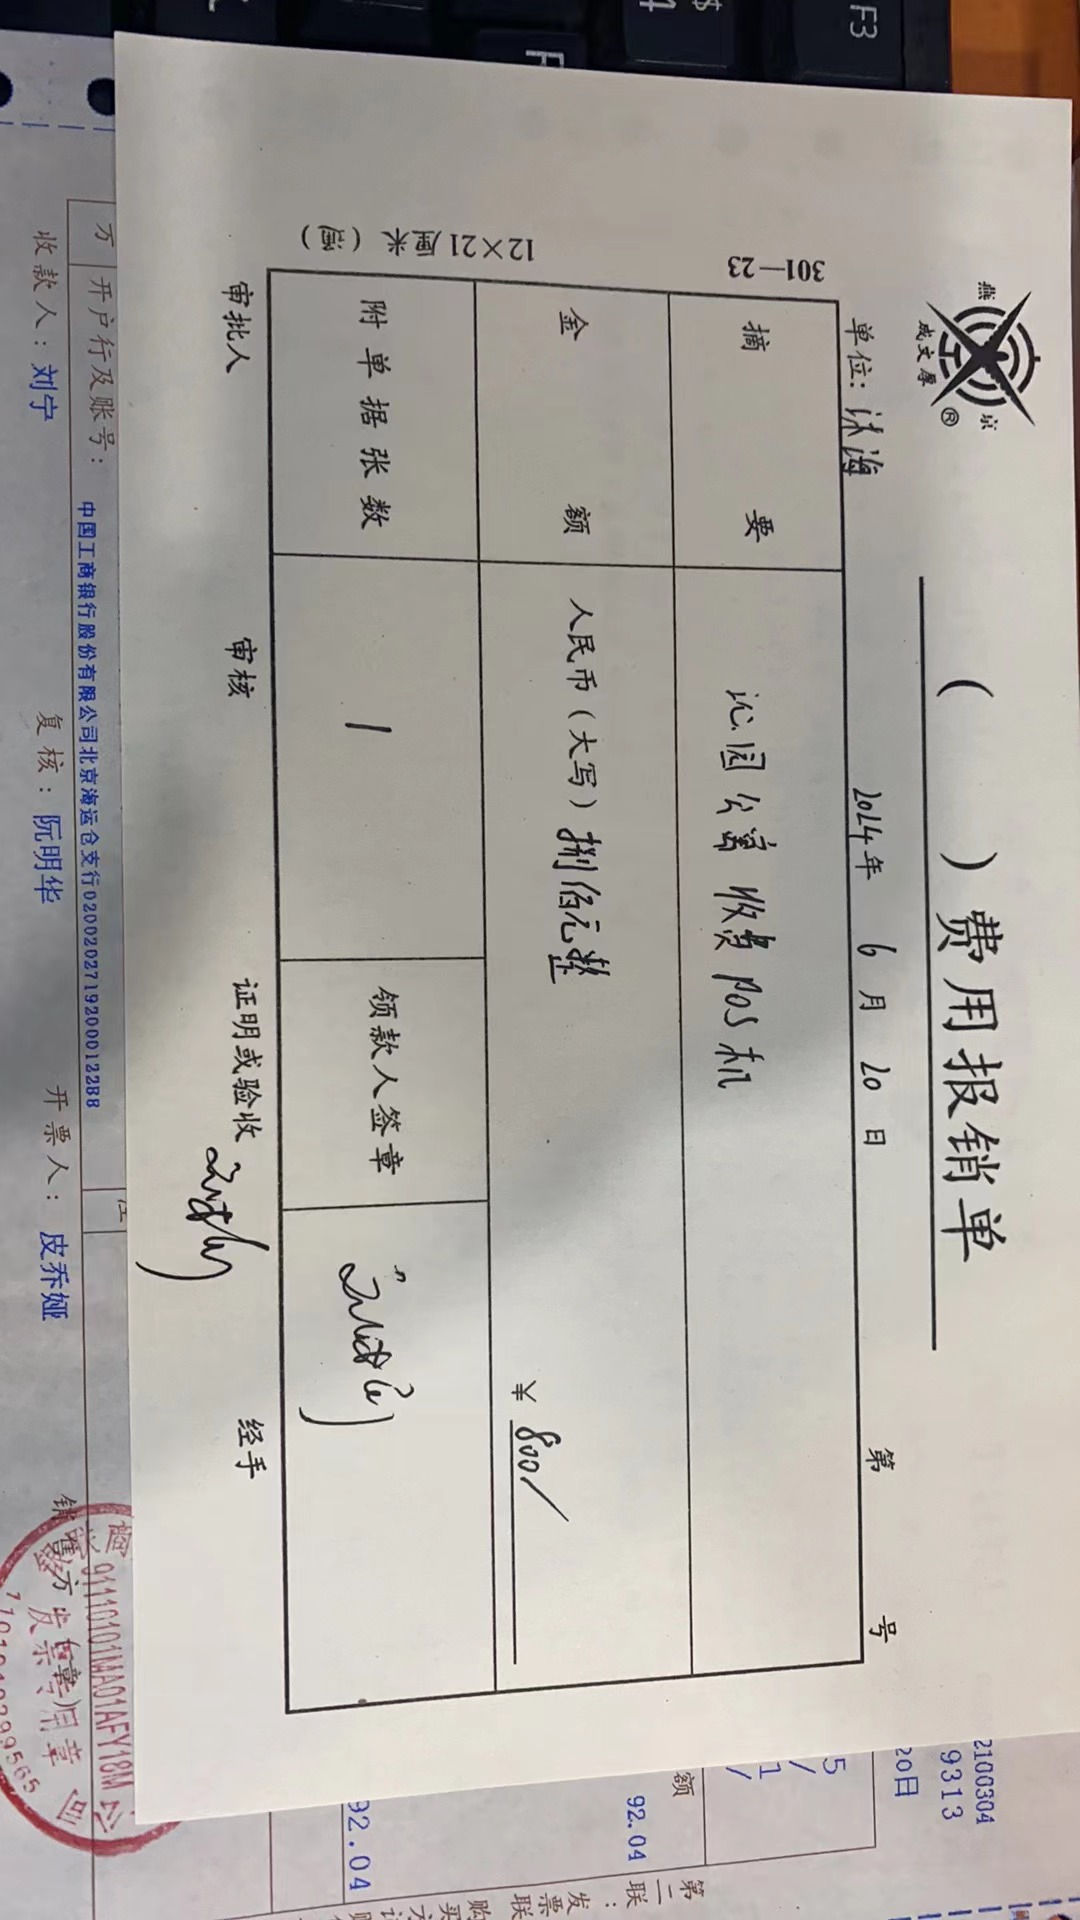 F3
$
燕 京
成文厚 ®
( )费用报销单
单位: 沐海 2024年 6月 20日 第 号
301—23
12×21厘米(通)
摘 要 沁园公寓 收费POS机
金 额 人民币(大写)捌佰元整 ¥ 800/
附单据张数 1 领款人签章
审批人 审核 证明或验收 经手
2100304
9313
20日
92.04
额
92.04
第二联:发票联
开户行及账号: 中国工商银行股份有限公司北京海运仓支行0200202719200012288
收款人: 刘宁 复核: 阮明华 开票人: 皮乔娅 销售方:(章)
91110101MA01AFY18M
发票专用章